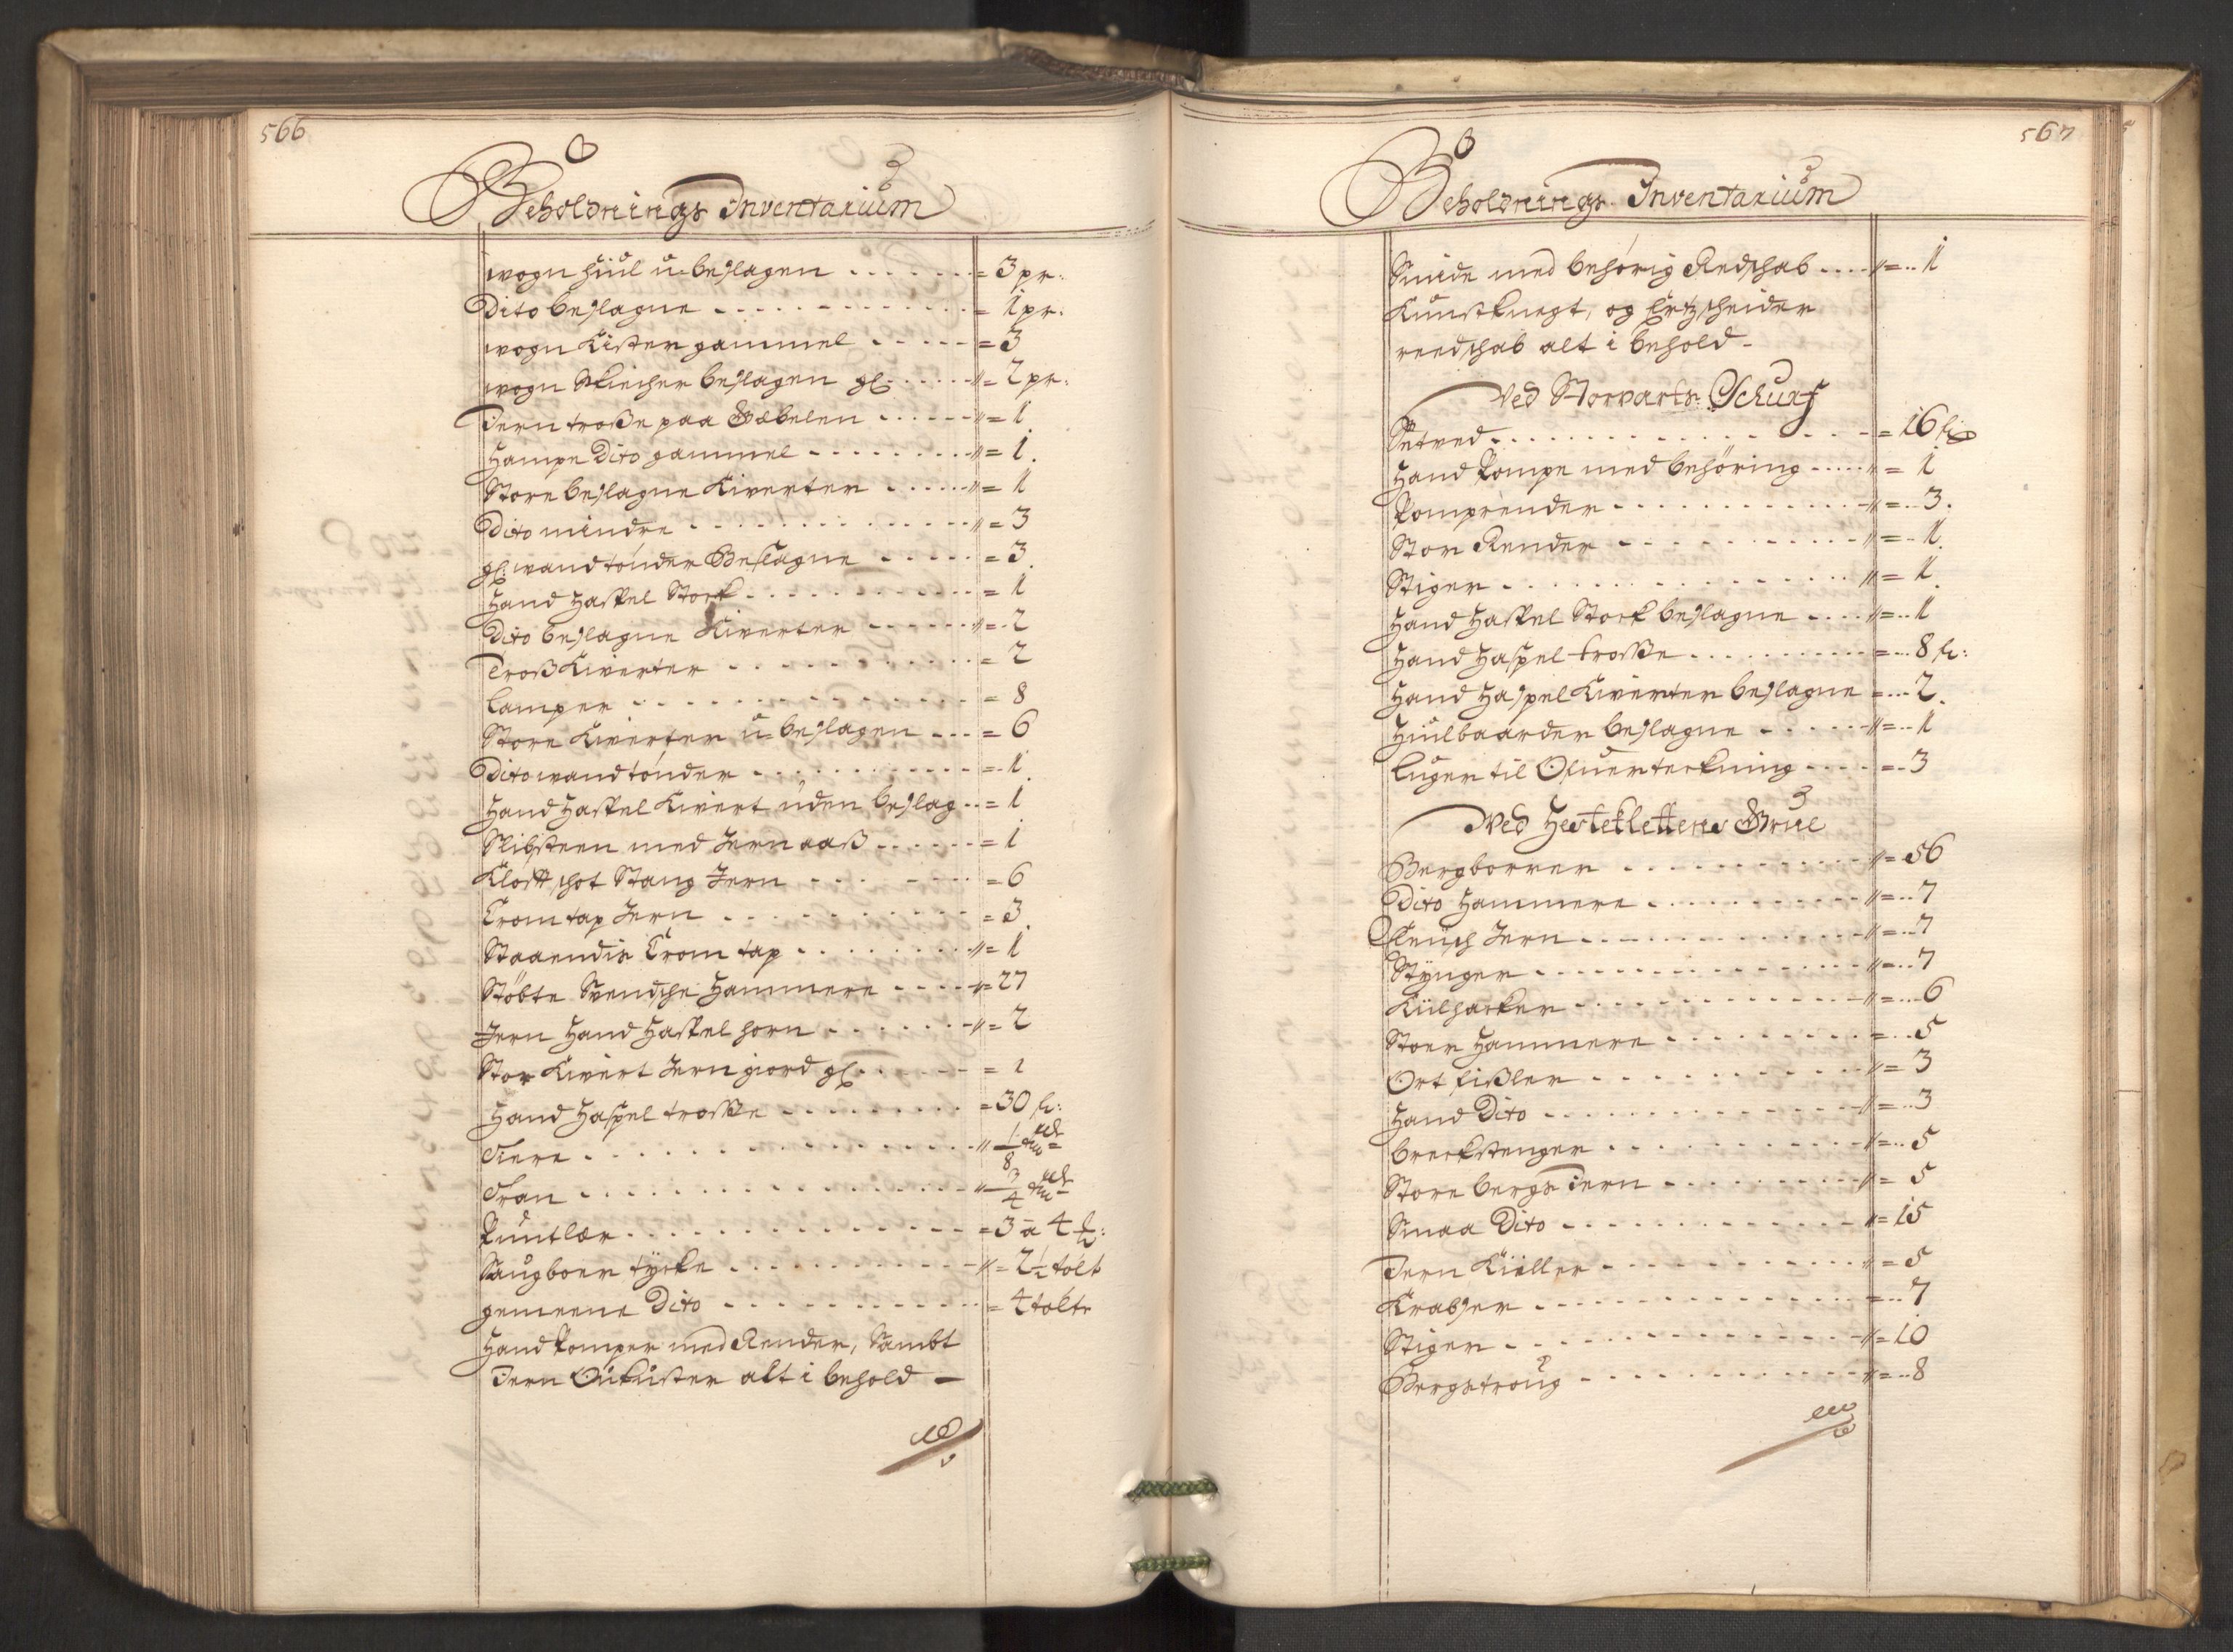 566
Beholdnings Inventarium
wogn hiul u-beslagen = 3 pr:
Dito beslagne = 1 pr:
wogn Kister gammel = 3
wogn beslagen gl = 2 pr:
Jern troße paa Gøbelen = 1
Hampe Dito gammel = 1.
Store beslagne Kiverter = 1
Dito mindre = 3
gl: wandtönder Beslagne = 3
Hand Haspel Stock = 1
Dito beslagne Kiverter = 2
Troß Kiverter = 2
Lamper = 8
Store Kiverter u-beslagen = 6
Dito wandtönder = 1
Hand Haspel Kivert uden beslag = 1
Slibsteen med Jern aaß = 1
Kloft schot Stang Jern = 6
Crom tap Jern = 3
Staaendis Crom tap = 1
Stöbte Svendsche Hammere = 27
Jern Hand Haspel horn = 2
Stor Kivert Jern giord gl = 1
Hand Haspel troße = 30 fv:
Tiere 1/8
Tran 3/4
Puntlær = 3 a 4
Saugboer tycke = 2 1/2 tolt
gemeene Dito = 4 tolte
Hand Pomper med Render, Sambt
Jern alt i behold -
567
Beholdnings Inventarium
Smide med behörig Redschab = 1
Kunstknegt, og Ertzscheider
reedschab alt i behold -
Ved Storvarts Schurf
Setved = 16
Hand Pompe med behöring = 1
Pomprender = 3.
Stor Render = 1.
Stiger = 1.
Hand Haspel Stock beslagne = 1
Hand Haspel troße = 8 fv:
Hand Haspel Kiverter beslagne = 2.
Hiulbaarder beslagne = 1
Luger til Ofuerteckning = 3
Ved Hestekletten Grue
Bergborrer = 56
Dito Hammere = 7
Jern = 7
Stynger = 7
Kulhacker = 6
Stoer Hammere = 5
Ort fißler = 3
Hand Dito = 3
breckstenger = 5
Store bergs Jern = 5
Smaa Dito = 15
Jern Kiiller = 5
Krabser = 7
Stiger = 10
Bergstroug = 8